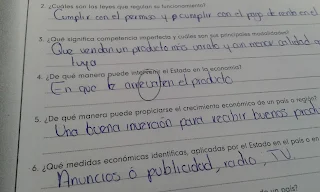 2. ¿Cuáles son las leyes que regulan su funcionamiento?
Cumplir con el permiso y cumplir con el pago de renta en el
3. ¿Qué significa competencia imperfecta y cuáles son sus principales
Que vendan un producto más barato y con menor calidad a
tuya
4. ¿De qué manera puede intervenir el Estado en la economía?
En que te aprueven el producto
5. ¿De qué manera puede propiciarse el crecimiento económico de un país o región?
Una buena inverción para recibir buenos prod
6. ¿Qué medidas económicas identificas, aplicadas por el Estado en el país o en
Anuncios ó publicidad, radio, TV.
un país?